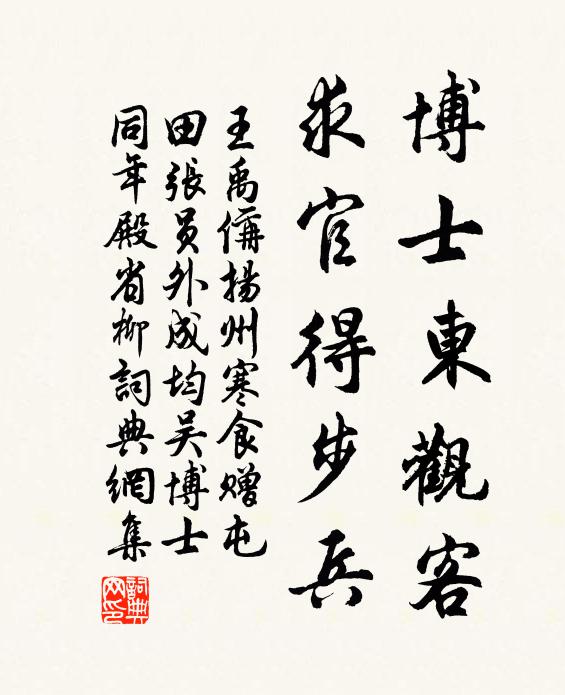 博士東觀客
求官得步兵
王禹偁揚州寒食贈屯
田張員外成均吴博士
同年殿省柳詞典網集
詞典网印